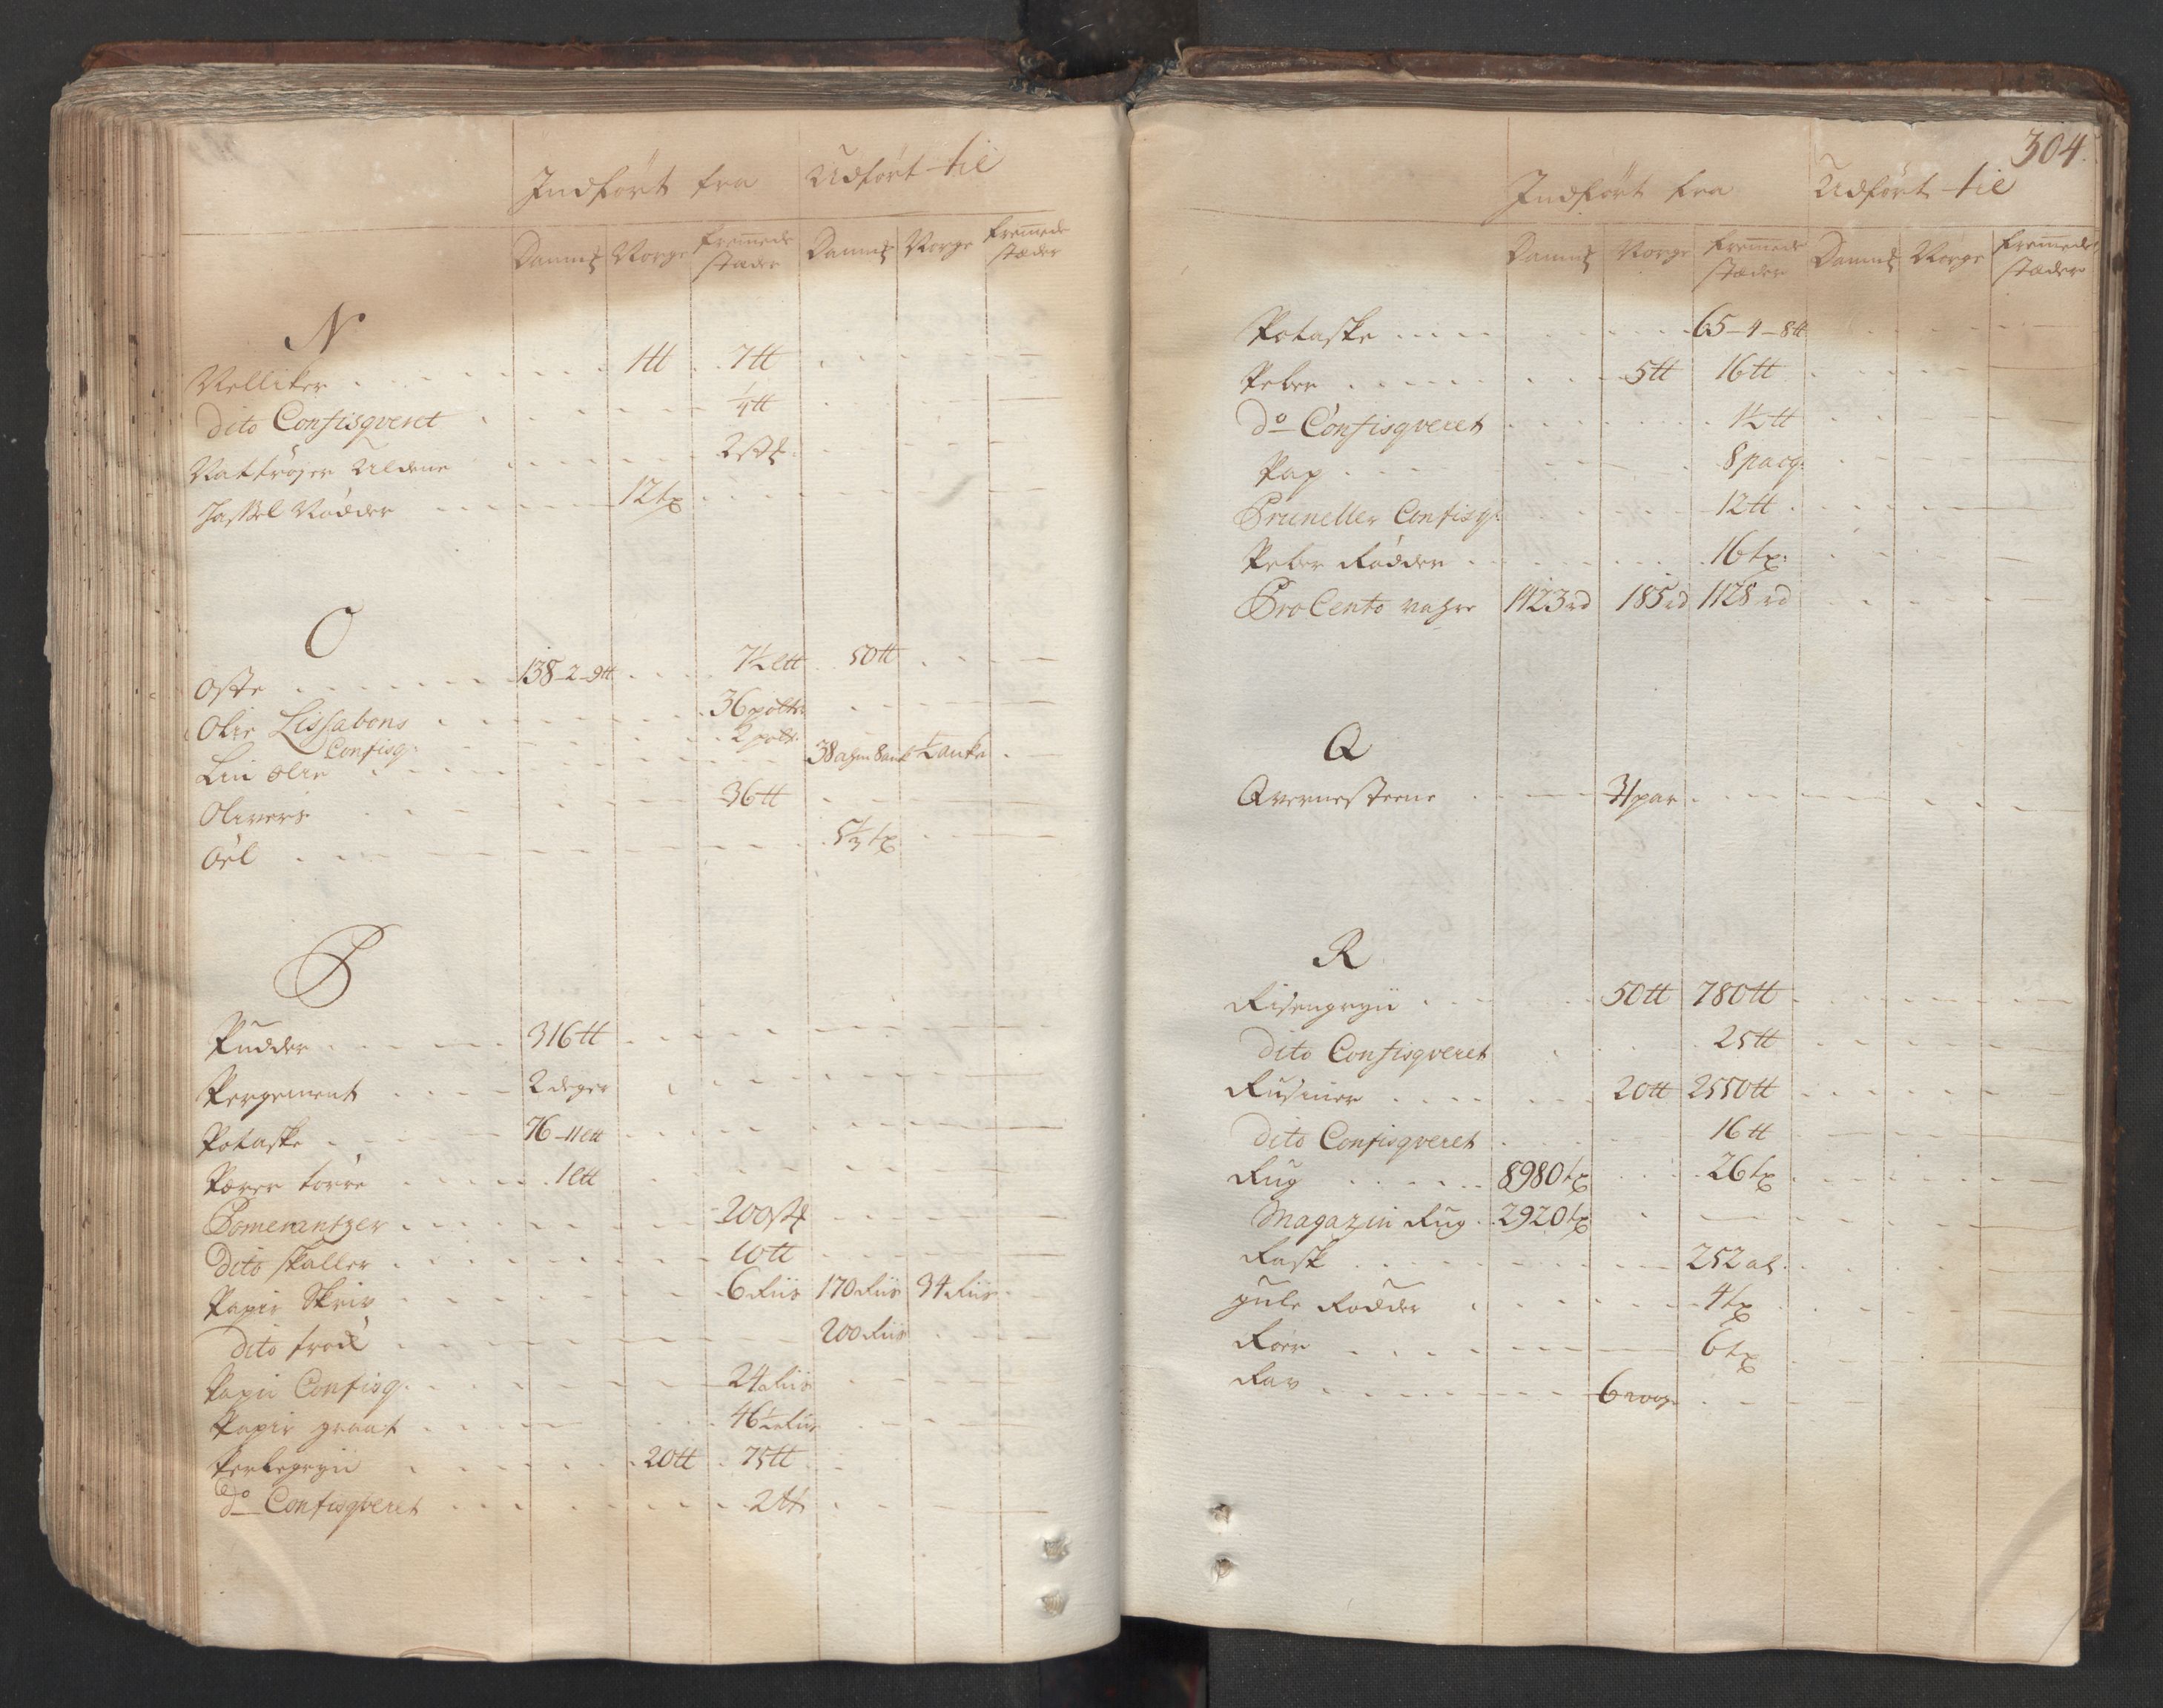 Indført fra Udført til
Danmk Norge fremmede stæder Danmk Norge fremmede stæder
N
Nelliker 1 tt 7 tt
dito Confisqveret 1/4 tt
Nattrøjer Uldene 2 stk
12 tr
O
Oste 138-2-9 tt 7½ ltt 50 tt
Olie Lissabons 36 potter
Confisq: 2 pott
Lin olie 38 ahm 8 ank ½ anker
Olivers 36 tt
Øel 5⅓ tr
P
Pudder 316 tt
Pergement 2 deger
Potaske 76-11 ltt
Pærer tørre 1 ltt
Pomerantzer 200 stk
Dito skaller 10 tt
Papir Skriv 6 Riis 170 Riis 34 Riis
dito 200 Riis
Papir Confisq. 24 Riis
Papir graat 46½ Riis
Perlegryn 20 tt 75 tt
do Confisqveret 2 tt
304.
Indført fra Udført til
Danmk Norge fremmede stæder Danmk Norge fremmede stæder
Potaske 65-4-8 tt
Peber 5 tt 16 tt
do Confisqveret 1½ tt
Pap 8 pacq:
Pruneller Confisq: 12 tt
Peber Rødder 16 tr:
ProCento vahre 1423 rd 185 rd 1128 rd
Q
Qvernesteene 31 par
R
Risengryn 50 tt 780 tt
dito Confisqveret 25 tt
Rusiner 20 tt 2550 tt
dito Confisqveret 16 tt
Rug 8980 tr 26 tr
Magazin Rug 2920 tr
Rask 252 al.
gule Rødder 4 tr
Roer 6 tr
Rav 6